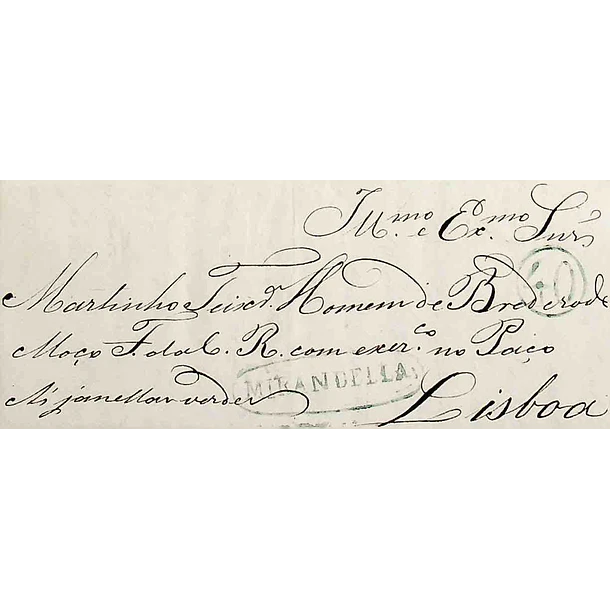 Ill.mo e Ex.mo Snr
40
Martinho Teixr.ª Homem de Brederode
Moço F. da C. R. com exer.co no Paço
MIRANDELLA
A's janellas verdes Lisboa